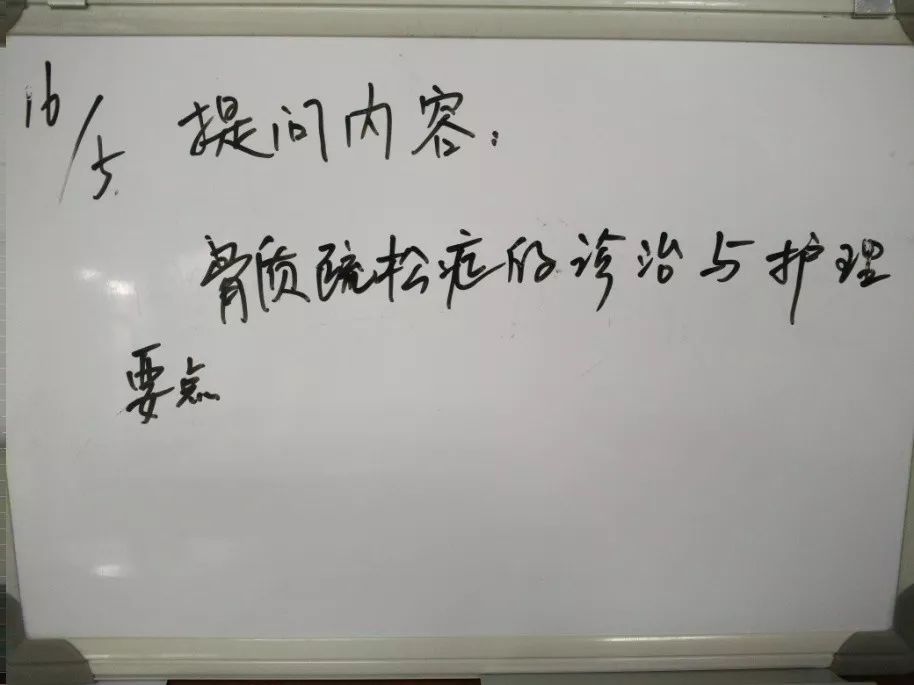 16/5 提问内容：
骨质疏松症的诊治与护理
要点